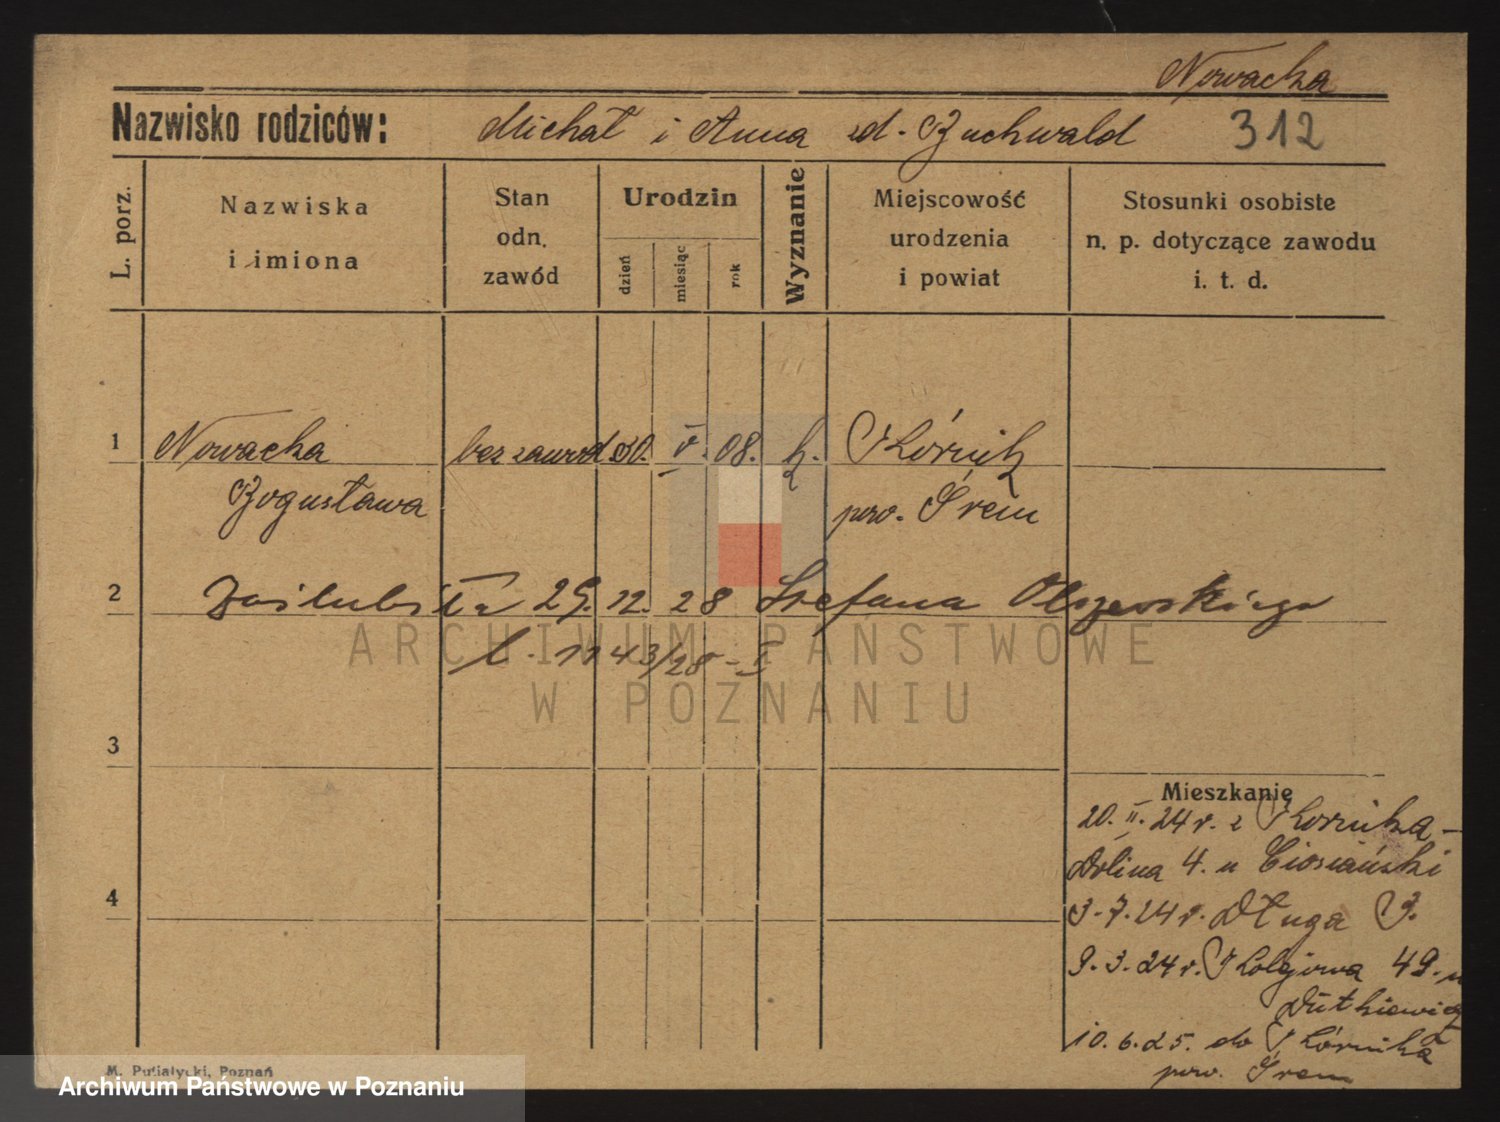 Nowacka
Nazwisko rodziców: Michał i Anna zd. Buchwald 312
L. porz.
Nazwiska i imiona
Stan odn. zawód
Urodzin
dzień
miesiąc
rok
Wyznanie
Miejscowość urodzenia i powiat
Stosunki osobiste n. p. dotyczące zawodu i. t. d.
1 Nowacka bez zawod. 30. V. 08. k. Kórnik
Bogusława pow. Śrem
2 Zaślubiła 29. 12. 28 Stefana Olszewskiego
L. 1143/28 - I
3
Mieszkanie
20. II. 24 r. z Kornika -
Dolina 4. u Ciosiański
4
3. 7. 24 r. Długa 9.
9. 3. 24 r. Kolejowa 49. u
Dutkiewicz
10. 6. 25. do Kórnika
pow. Śrem
M. Putiatycki, Poznań
ARCHIWUM PAŃSTWOWE
W POZNANIU
Archiwum Państwowe w Poznaniu